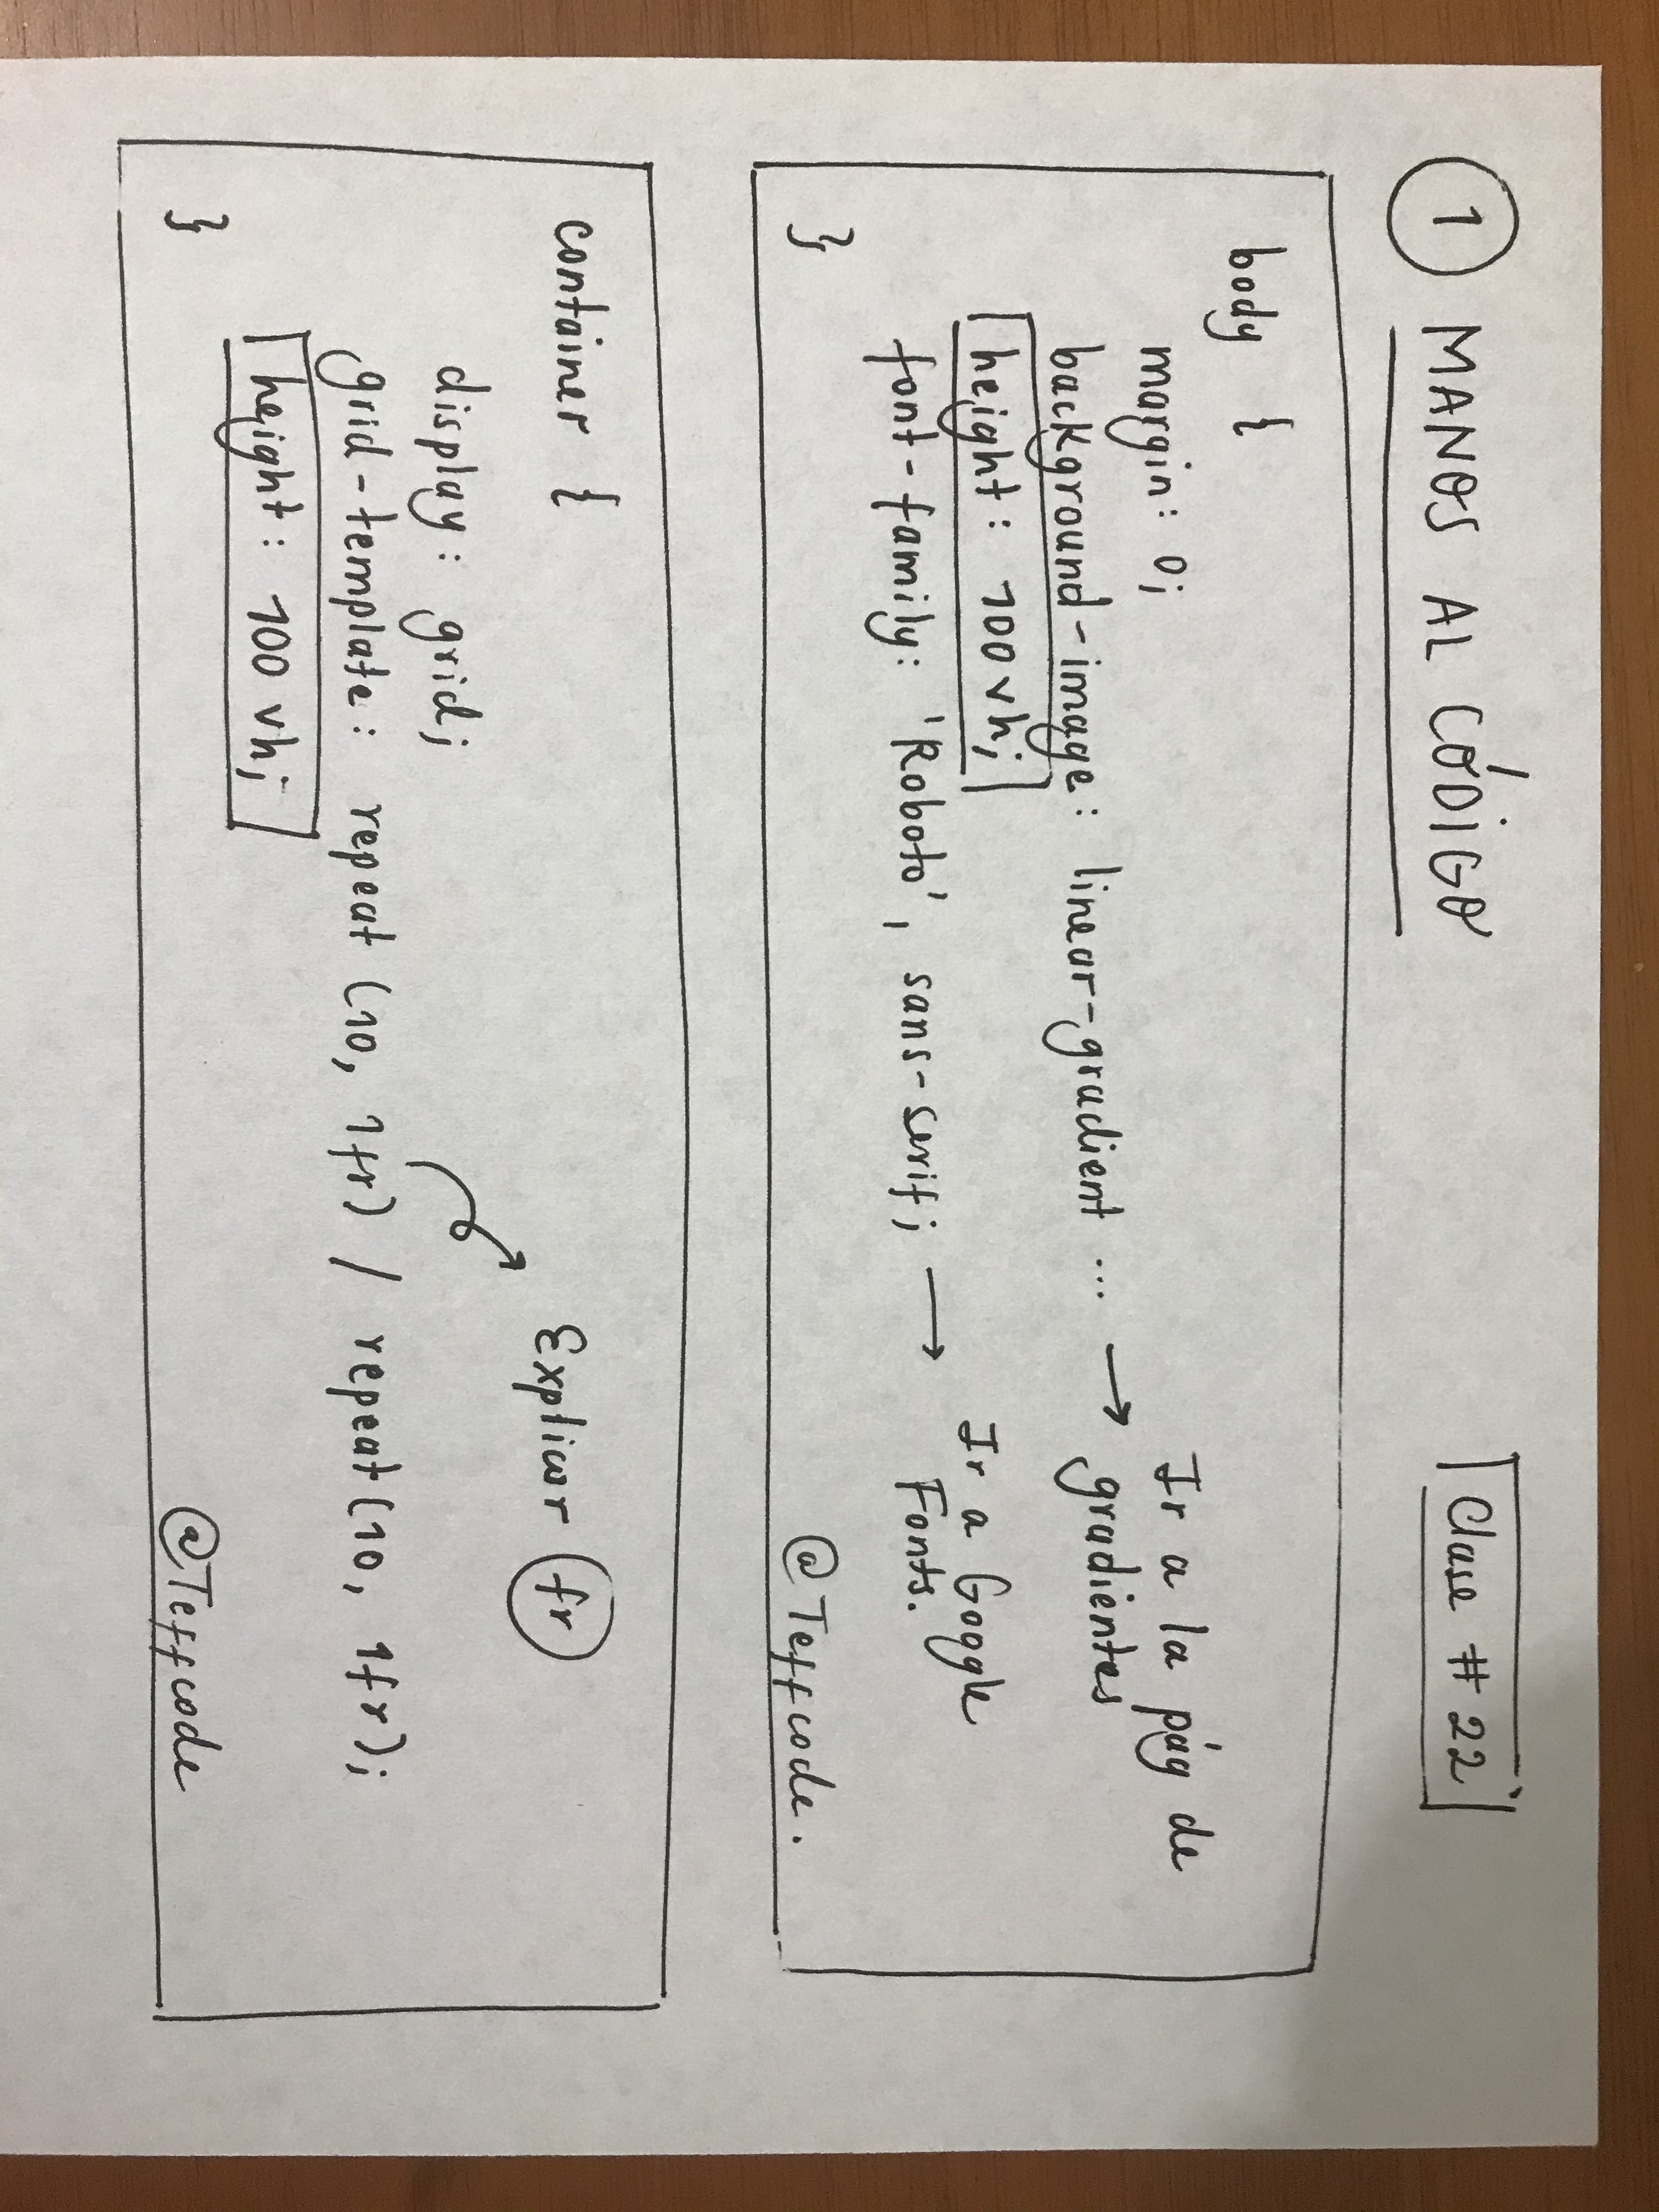 1 MANOS AL CÓDIGO
Clase # 22
body {
margin: 0;
background-image: linear-gradient ... → Ir a la pág de
gradientes
height: 100vh;
font-family: 'Roboto', sans-serif; → Ir a Google
Fonts.
}
@Teffcode.
container {
Explicar fr
display: grid;
grid-template: repeat (10, 1fr) / repeat (10, 1fr);
height: 100vh;
}
@Teffcode